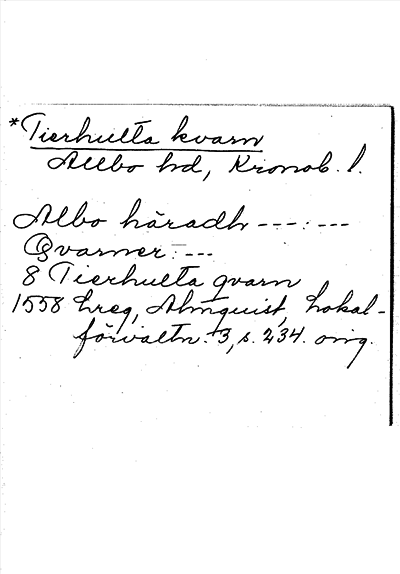 *Tierhulta kvarn
Allbo hd, Kronob. l.
Albo häradh ---:---
Qvarner: ---
8 Tierhulta qvarn
1558 Lreg, Almquist, Lokal-
förvaltn. 3, s. 234. orig.